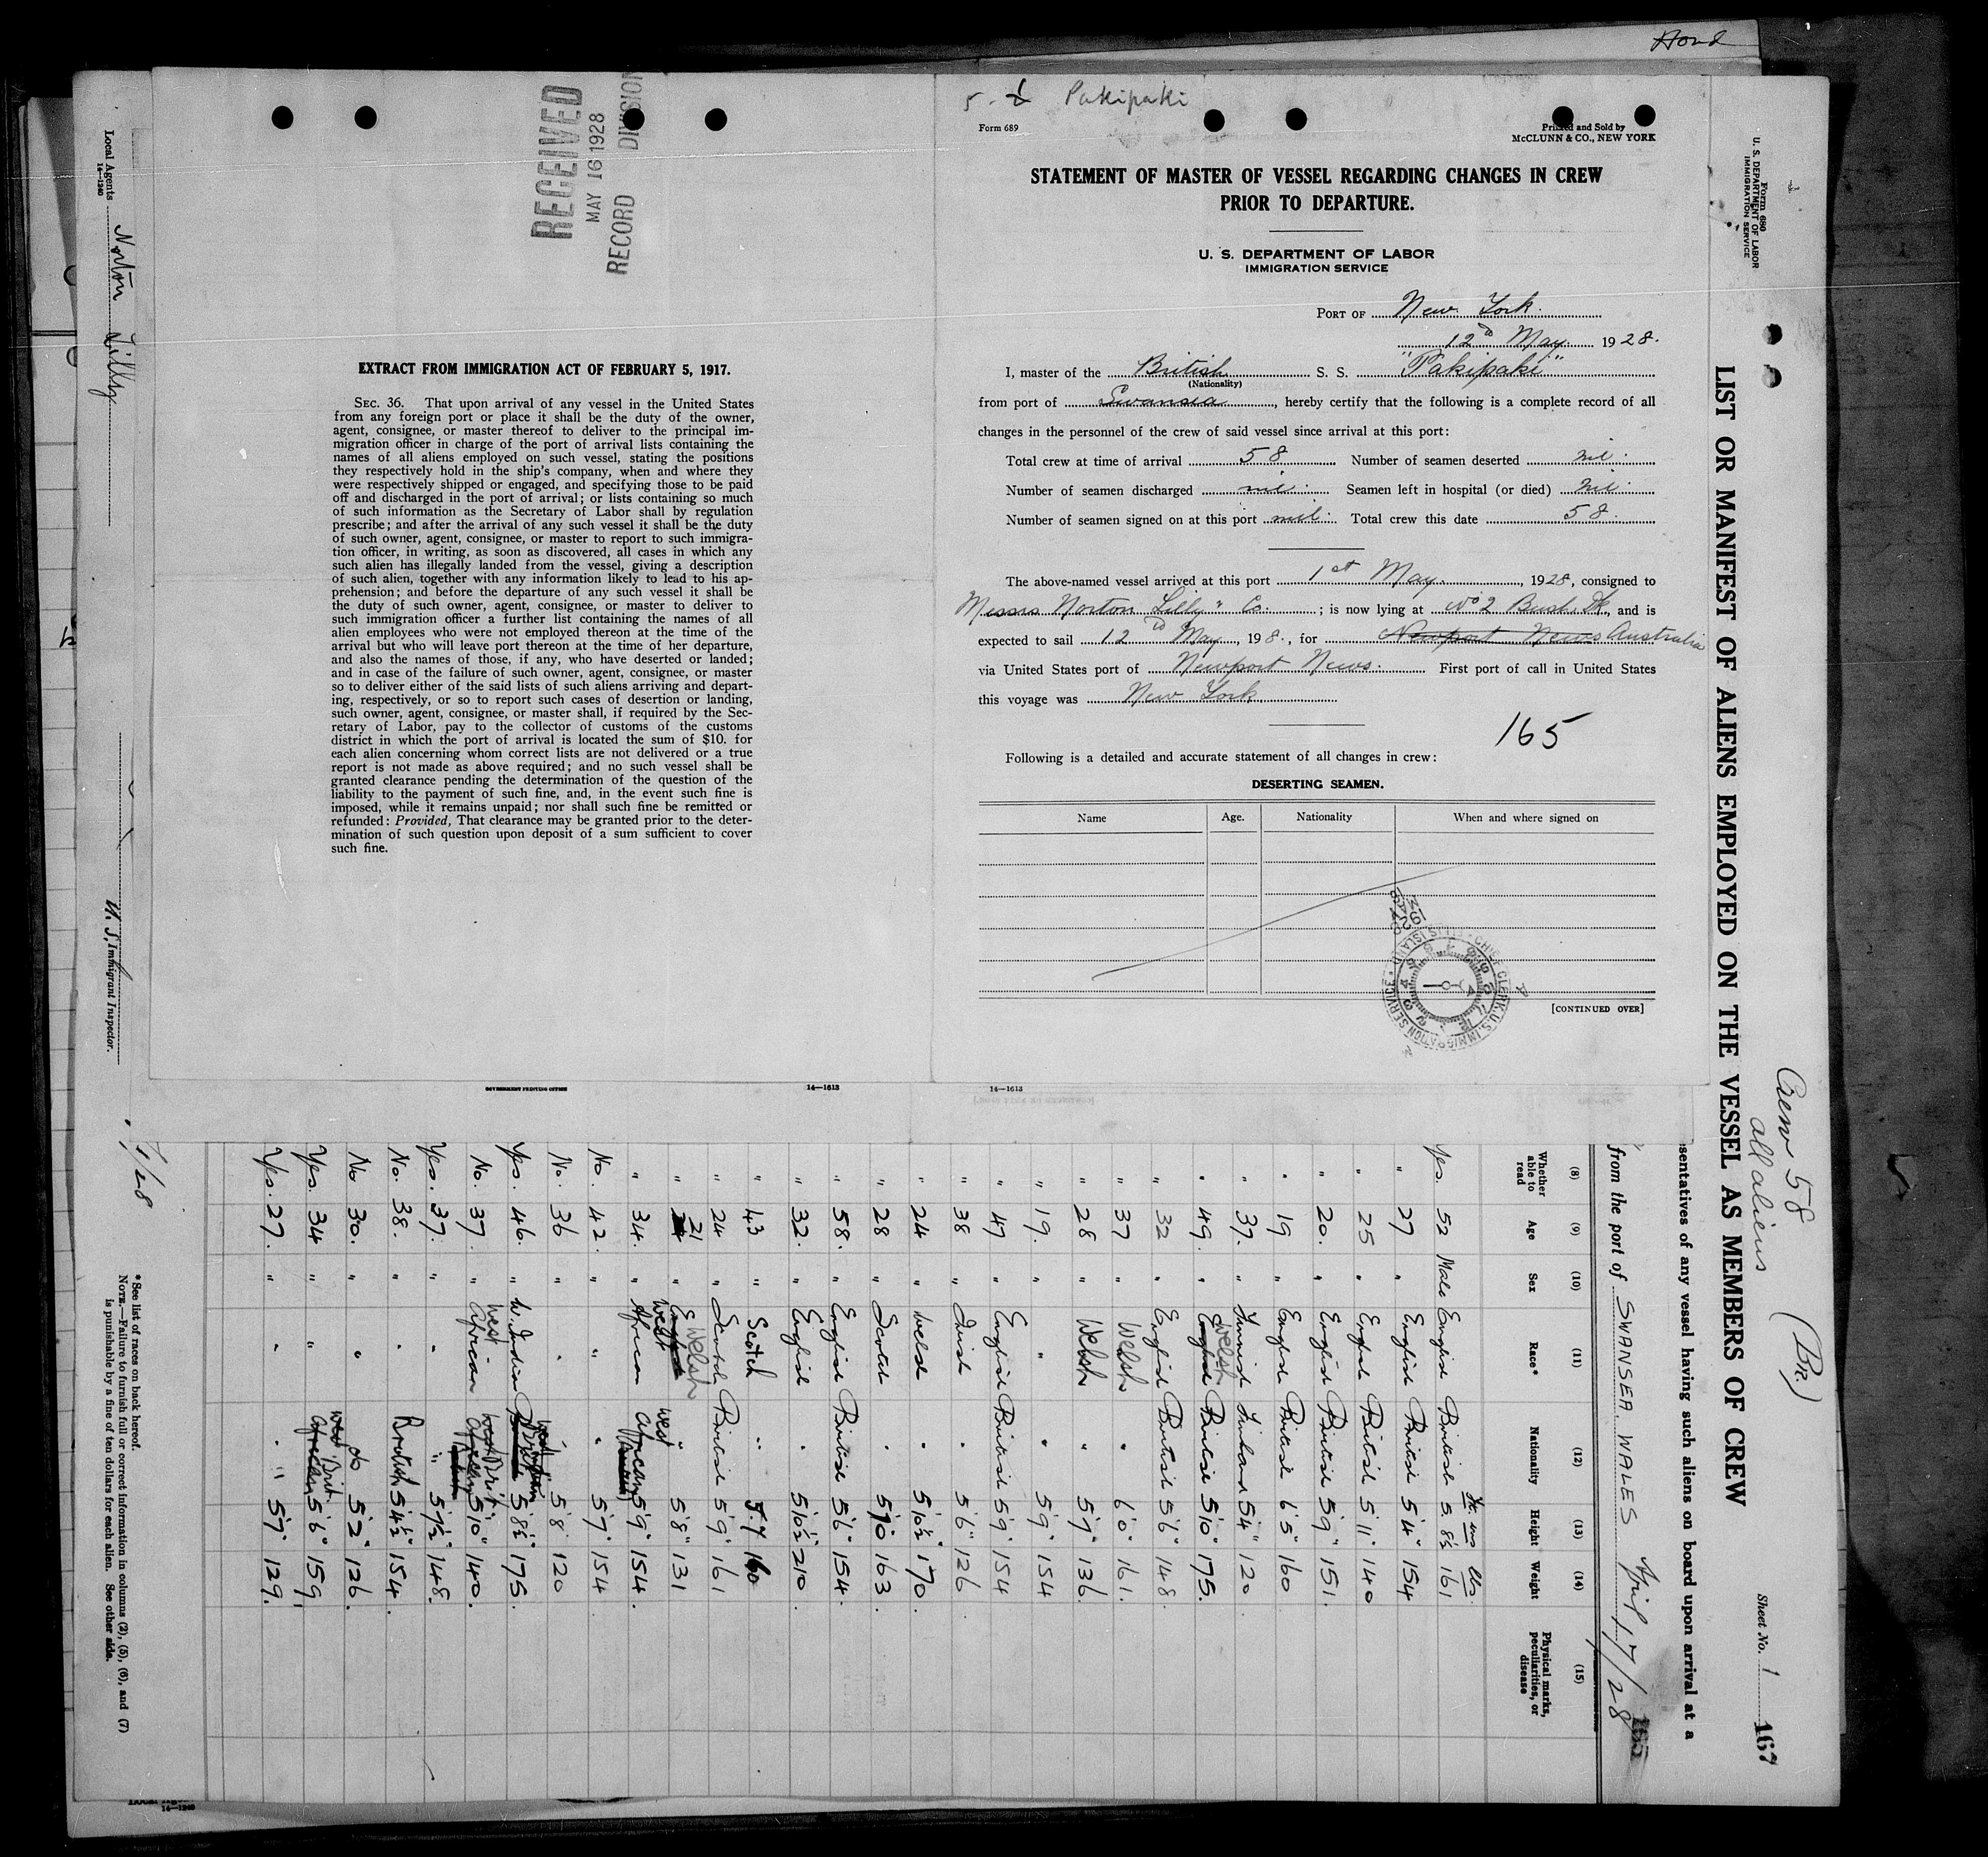 Hond
5-
Pakipaki
Form 689
Printed and Sold by
McCLUNN & CO., NEW YORK
STATEMENT OF MASTER OF VESSEL REGARDING CHANGES IN CREW
PRIOR TO DEPARTURE.
U. S. DEPARTMENT OF LABOR
IMMIGRATION SERVICE
PORT OF New York.
12th May 1928.
I, master of the British S. S. "Pakipaki"
(Nationality)
from port of Swansea, hereby certify that the following is a complete record of all
changes in the personnel of the crew of said vessel since arrival at this port:
Total crew at time of arrival 58 Number of seamen deserted nil.
Number of seamen discharged nil. Seamen left in hospital (or died) nil.
Number of seamen signed on at this port nil. Total crew this date 58.
The above-named vessel arrived at this port 1st May, 1928, consigned to
Messrs Norton Lilly " Co.; is now lying at No 2 Bush Dk, and is
expected to sail 12 May, 198., for Newport News Australia
via United States port of Newport News. First port of call in United States
this voyage was New York
165
Following is a detailed and accurate statement of all changes in crew:
DESERTING SEAMEN.
Name Age. Nationality When and where signed on
CHIEF CLERK, U.S. IMMIGRATION SERVICE
[CONTINUED OVER]
14—1613
RECEIVED
MAY 16 1928
RECORD DIVISION
EXTRACT FROM IMMIGRATION ACT OF FEBRUARY 5, 1917.
SEC. 36. That upon arrival of any vessel in the United States
from any foreign port or place it shall be the duty of the owner,
agent, consignee, or master thereof to deliver to the principal im-
migration officer in charge of the port of arrival lists containing the
names of all aliens employed on such vessel, stating the positions
they respectively hold in the ship's company, when and where they
were respectively shipped or engaged, and specifying those to be paid
off and discharged in the port of arrival; or lists containing so much
of such information as the Secretary of Labor shall by regulation
prescribe; and after the arrival of any such vessel it shall be the duty
of such owner, agent, consignee, or master to report to such immigra-
tion officer, in writing, as soon as discovered, all cases in which any
such alien has illegally landed from the vessel, giving a description
of such alien, together with any information likely to lead to his ap-
prehension; and before the departure of any such vessel it shall be
the duty of such owner, agent, consignee, or master to deliver to
such immigration officer a further list containing the names of all
alien employees who were not employed thereon at the time of the
arrival but who will leave port thereon at the time of her departure,
and also the names of those, if any, who have deserted or landed;
and in case of the failure of such owner, agent, consignee, or master
so to deliver either of the said lists of such aliens arriving and depart-
ing, respectively, or so to report such cases of desertion or landing,
such owner, agent, consignee, or master shall, if required by the Sec-
retary of Labor, pay to the collector of customs of the customs
district in which the port of arrival is located the sum of $10. for
each alien concerning whom correct lists are not delivered or a true
report is not made as above required; and no such vessel shall be
granted clearance pending the determination of the question of the
liability to the payment of such fine, and, in the event such fine is
imposed, while it remains unpaid; nor shall such fine be remitted or
refunded: Provided, That clearance may be granted prior to the deter-
mination of such question upon deposit of a sum sufficient to cover
such fine.
GOVERNMENT PRINTING OFFICE
14—1613
Form 680
U. S. DEPARTMENT OF LABOR
IMMIGRATION SERVICE
Crew 58
all aliens
(Br.)
Sheet No. 1
167
LIST OR MANIFEST OF ALIENS EMPLOYED ON THE VESSEL AS MEMBERS OF CREW
sentatives of any vessel having such aliens on board upon arrival at a
from the port of SWANSEA. WALES April 17/28
(8) (9) (10) (11) (12) (13) (14) (15)
Whether able to read Age Sex Race* Nationality Height Weight Physical marks, peculiarities, or disease
Ft. ins lbs
Yes. 52 Male English British 5. 8½ 161
" 27 " English British 5 4" 154
" 25 " English British 5 11" 140
" 20. " English British 5 9" 151.
" 19 " English British 6 5" 160
" 37. " Finnish Finland 5 4" 120
" 49. " English Welsh British 5 10" 175.
" 32 " English British 5 6" 148
" 37 " Welsh " 6 0" 161.
" 28 " Welsh " 5 7" 136.
" 19. " " " 5 9" 154
" 47 " English British 5 9" 154
" 38 " Irish " 5 6" 126
" 24 " Welsh " 5 10½" 170.
" 28 " Scotch " 5 10" 163.
" 58. " English British 5 6" 154.
" 32. " English " 5 10½" 210.
" 43 " Scotch " 5.7 160
" 24 " Scotch British 5 9" 161
" 21 " English Welsh " 5 8" 131
" 34. " West African West African 5 9" 154.
No. 42. " " " 5 7" 154
No. 36 " " " 5 8" 120
Yes. 46. " W. Indian 5 8½" 175.
No. 37. " West African West African Brit. 5 10" 140.
Yes. 37. " " " 5 7½" 148.
No. 38. " " British 5 4½" 154.
No 30. " " do 5 2" 126.
Yes. 34 " " West African Brit. 5 6" 159.
Yes. 27. " " " 5 7" 129.
*See list of races on back hereof.
NOTE.—Failure to furnish full or correct information in columns (2), (5), (6), and (7)
is punishable by a fine of ten dollars for each alien. See other side.
Local Agents Norton Lilly
14—1240
U. S. Immigrant Inspector.